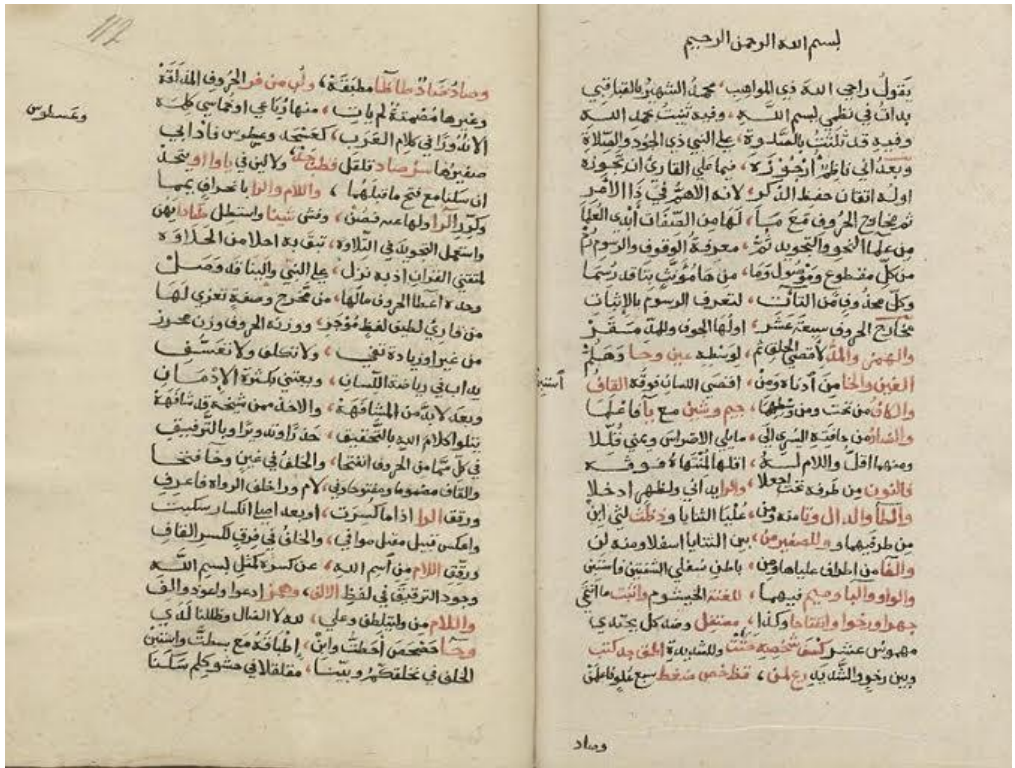 بسم الله الرحمن الرحيم
يقول راجي الله ذي المواهب، محمد الشهير بالقباقبي
بدأت في نظمي لبسم الله، وفيه ثنيت بحمد الله
وفيه قد ثلثت بالصلوة، على النبي ذي الجود والصلاة
وبعد اني ناظم ارجوزه، فيما على القارئ ان تحوزه
اوله اتقان حفظ الذكر، لانه الاهم في ذا الامر
ثم مخارج الحروف مع ما، لها من الصفات أبدى العلما
من علما النحو والتجويد ثم، معرفة الوقوف والرسوم ثم
من كل مقطوع وموصول وما، من ها مؤنث بتا قد رسما
وكل محذوف من، لتعرف الرسوم بالاثبات
مخارج الحروف سبعة عشر، اولها الجوف وللمد مقر
والهمز والهاء لاقصى الحلق ثم، لوسطه عين وحا وهلم
الغين والخا من ادناه ومن، اقصى اللسان فوقه القاف
استبن
والكاف من تحت ومن وسطها، جيم وشين مع يا فاعلما
والضاد من حافته اليسرى الى، ما يلي الاضراس وعنى قللا
ومنهما اقل واللام له، اقلها لمنتهاه فوقه
فالنون من طرفه تحت اجعلا، والرا يداني ولظهر ادخلا
والطا والدال وتا منه ومن، عليا الثنايا
من طرفيهما وللصفير من، بين الثنايا اسفلا ومنه لن
والفا من اطراف علياها ومن، باطن سفلى الشفتين واستبن
والواو والبا وميم فيهما، للغنة الخيشوم واثبت ما
جهر ورخو وانفتاح وكذا، مستفل وضد كل يحتذى
مهموس عشر كسف شخصه حثت وللشديدة
وبين رخو والشديد رع لمن، قظ خص ضغط سبع علو فاعلمن
وصاد
112
وصاد ضاد طا ظا مطبقة، ولب من فر الحروف المذلقة
وغيرها مصمتة لم يات، منها رباعي او خماسي كلمة
وعسطوس
الا ندورا في كلام العرب، كعسجد وعطوس فادأب
صفيرها سز صاد تلقل قطب جد، ولا لين في يا واو
ان سكنا مع فتح ما قبلهما، واللام والرا بانحراف
وكرر الرا ولها عنه فصن، وفش شينا واستطل ضادا يهن
واستعمل التجويد في التلاوة، تبق به احلا من الحلاوة
لمقتني القران اذ به نزل، على النبي والينا قد وصل
وحده اعطا الحروف مالها، من مخرج وصفة تعزى لها
من قارئ لطيف لفظ موجز، ووزنه الحروف وزن محرز
من غير ازيادة تفي، ولا تكلف ولا تعسف
يداب في رياضة اللسان، ويعتني بكثرة الادمان
وبعد لابد من المشافهة، والاخذ ممن شيخه قد شافهه
يتلو كلام الله بالتحقيق، حدرا وتدويرا وبالترقيق
في كل ما من الحروف انفتحا، والخلف في غين وخا فتحا
والقاف مضموما ومفتوحا وفي، لام ورا خلف الرواة فاعرف
ورقق الرا اذا ما كسرت، او بعد اصلي انكسار سكنت
واعكس قبيل مقبل موافي، والخلف في فرق لكسر القاف
ورقق اللام من اسم الله، عن كسرة كمثل لبسم الله
وجود الترقيق في لفظ الالف، وهمز ادعوا واعوذ والف
واللام من وليتلطف وعلى، لله لا الضال وظللنا لدى
وحا حصحص احطت وابن، اطباقه مع بسطت واستبن
الخلف في نخلقكم وبينا، مقلقلا في حشو كلم سكنا